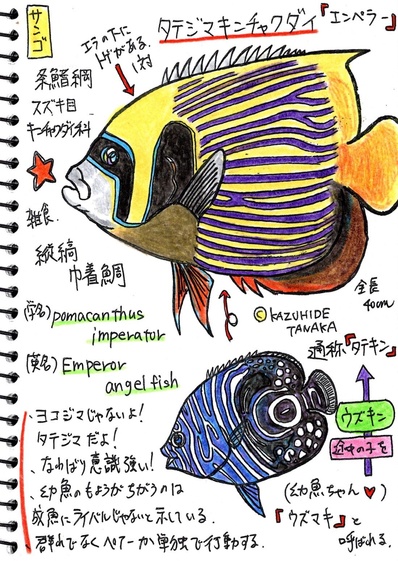 サンゴ
タテジマキンチャクダイ『エンペラー』
エラの下に
トゲがある。
1対
条鰭綱
スズキ目
キンチャクダイ科
雑食。
縦縞
巾着鯛
全長
40cm
(学名) pomacanthus
imperator
©KAZUHIDE
TANAKA
(英名) Emperor
angel fish
通称『タテキン』
ウズキン
途中の子を
(幼魚ちゃん♥)
『ウズマキ』と
呼ばれる。
・ヨコジマじゃないよ!
タテジマだよ!
・なわばり意識強い!
・幼魚のもようがちがうのは
成魚にライバルじゃないと示している。
・群れでなくペアーか単独で行動する。